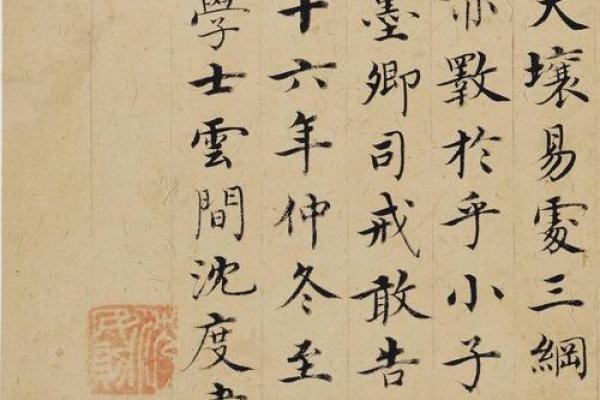 天壤易處三綱
亦斁於乎小子
墨卿司戒敢告
十六年仲冬至
學士雲間沈度書